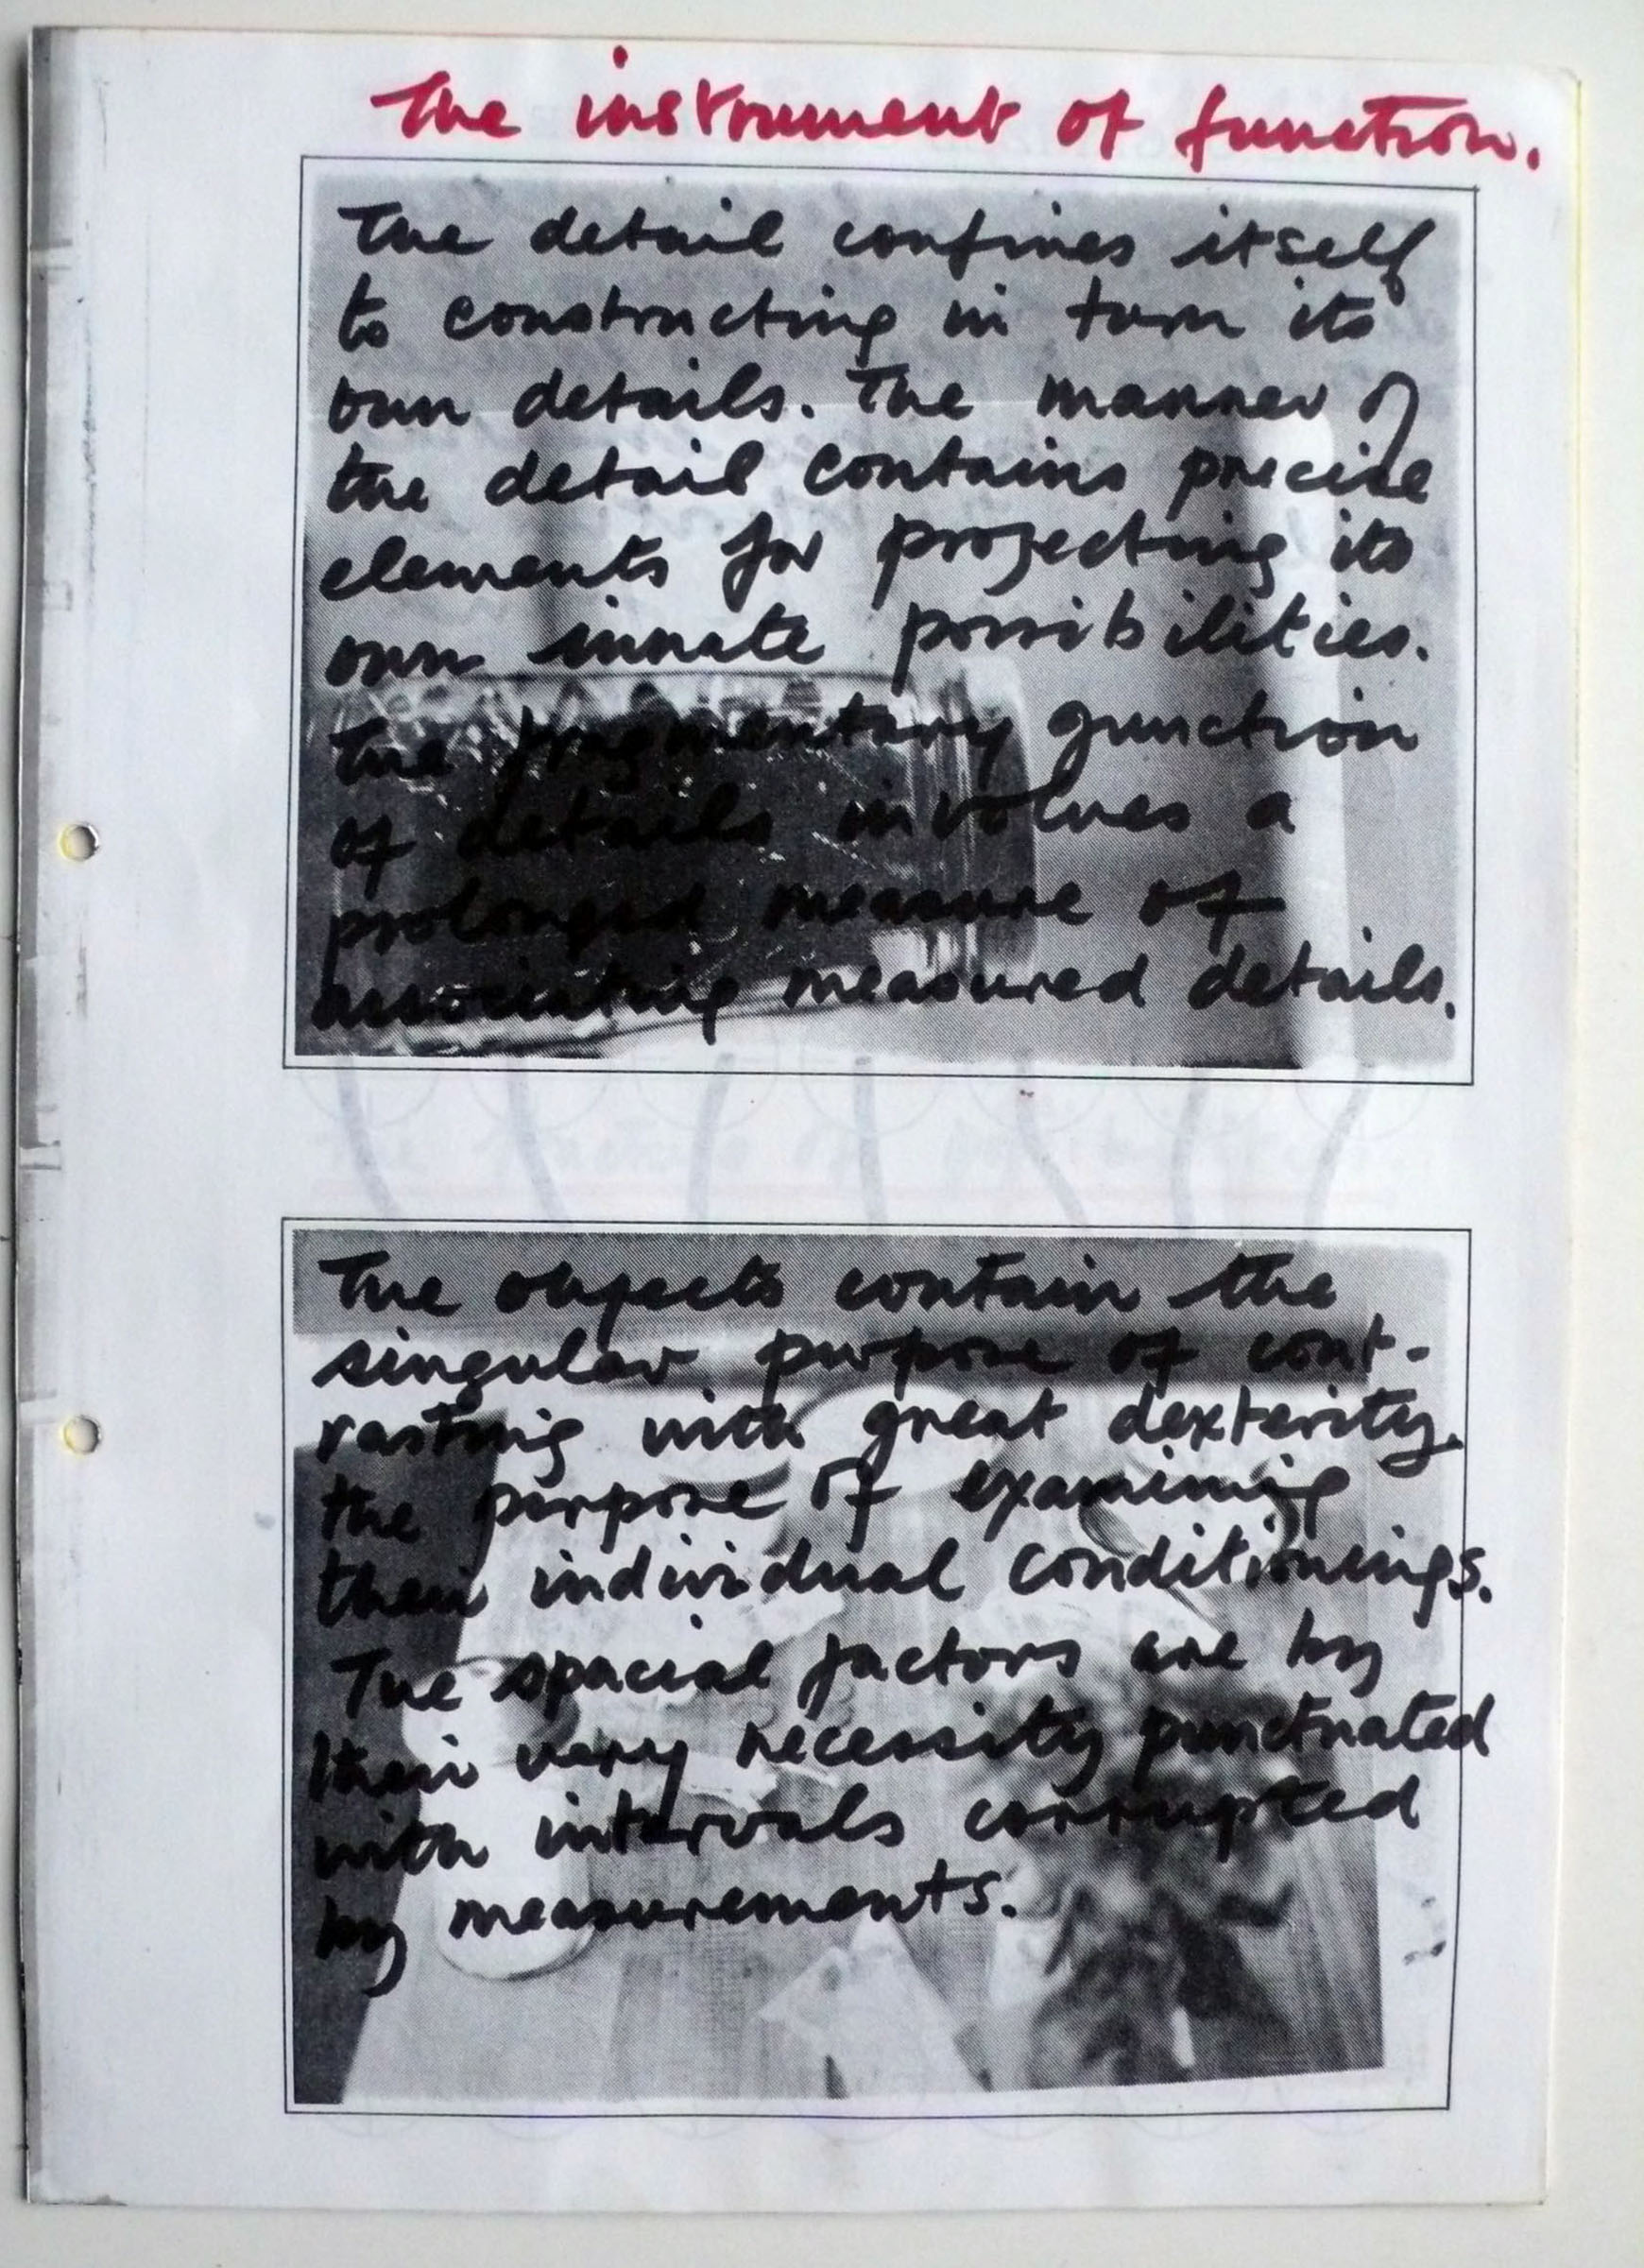 The instrument of function.
The detail confines itself
to constructing in turn its
own details. The manner of
the detail contains precise
elements for projecting its
own innate possibilities.
The fragmentary function
of details involves a
prolonged measure of
associating measured details.
The objects contain the
singular purpose of cont-
rasting with great dexterity.
the purpose of examining
their individual conditionings.
The spacial factors are by
their very necessity punctuated
with intervals corrupted
by measurements.